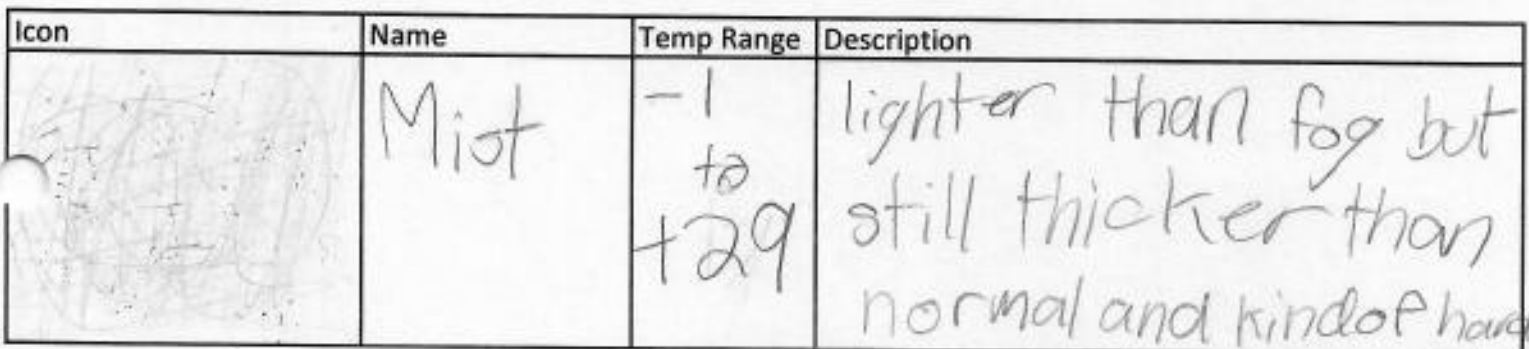 Icon Name Temp Range Description
Mist
-1
to
+29
lighter than fog but
still thicker than
normal and kind of hard